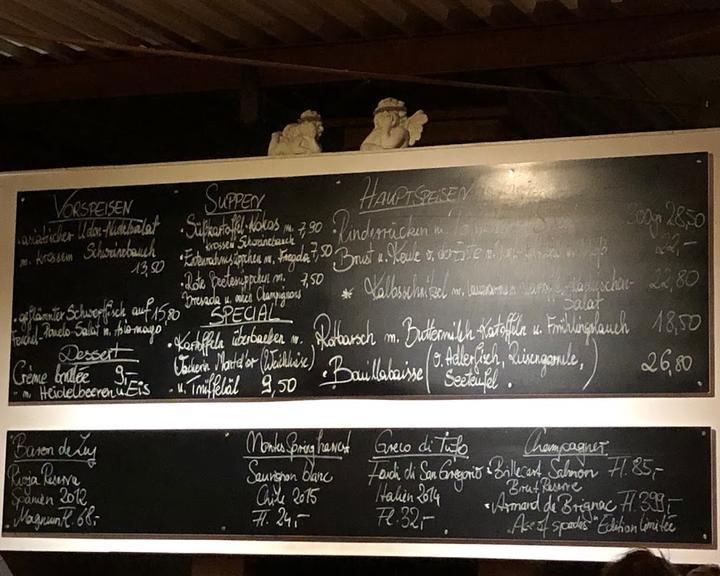 VORSPEISEN
asiatischer Udon-Nudelsalat
m. krossem Schweinebauch
13,50
geflämmter Schwertfisch auf 15,80
Fenchel-Pomelo-Salat m.
Dessert
Crème brûlée 9,-
m. Heidelbeeren u. Eis
SUPPEN
Süßkartoffel-Kokos m. 7,90
krossem Schweinebauch
m. Fregola 7,50
Rote Beetesüppchen m. 7,50
Bresaola u. Champignons
SPECIAL
Kartoffeln überbacken m.
Vacherin Mont d'or (Weichkäse)
u. Trüffelöl 9,50
HAUPTSPEISEN
Rinderrücken m. 300gr 28,50
Brust u. Keule v. der Ente 22,-
* Kalbsschnitzel m. lauwarmen 22,80
Salat
Rotbarsch m. Buttermilch-Kartoffeln u. Frühlingslauch 18,50
Bouillabaisse (v. Adlerfisch, Riesengarnele, 26,80
Seeteufel.)
Baron de Ley
Rioja Reserva
Spanien 2012
Magnum Fl. 68,-
Montes Spring harvest
Sauvignon blanc
Chile 2015
Fl. 24,-
Greco di Tufo
Feudi di San Gregorio
Italien 2014
Fl. 32,-
Champagner
Billecart Salmon Fl. 85,-
Brut Reserve
Armand de Brignac Fl. 399,-
"Ace of spades" Edition Limitée